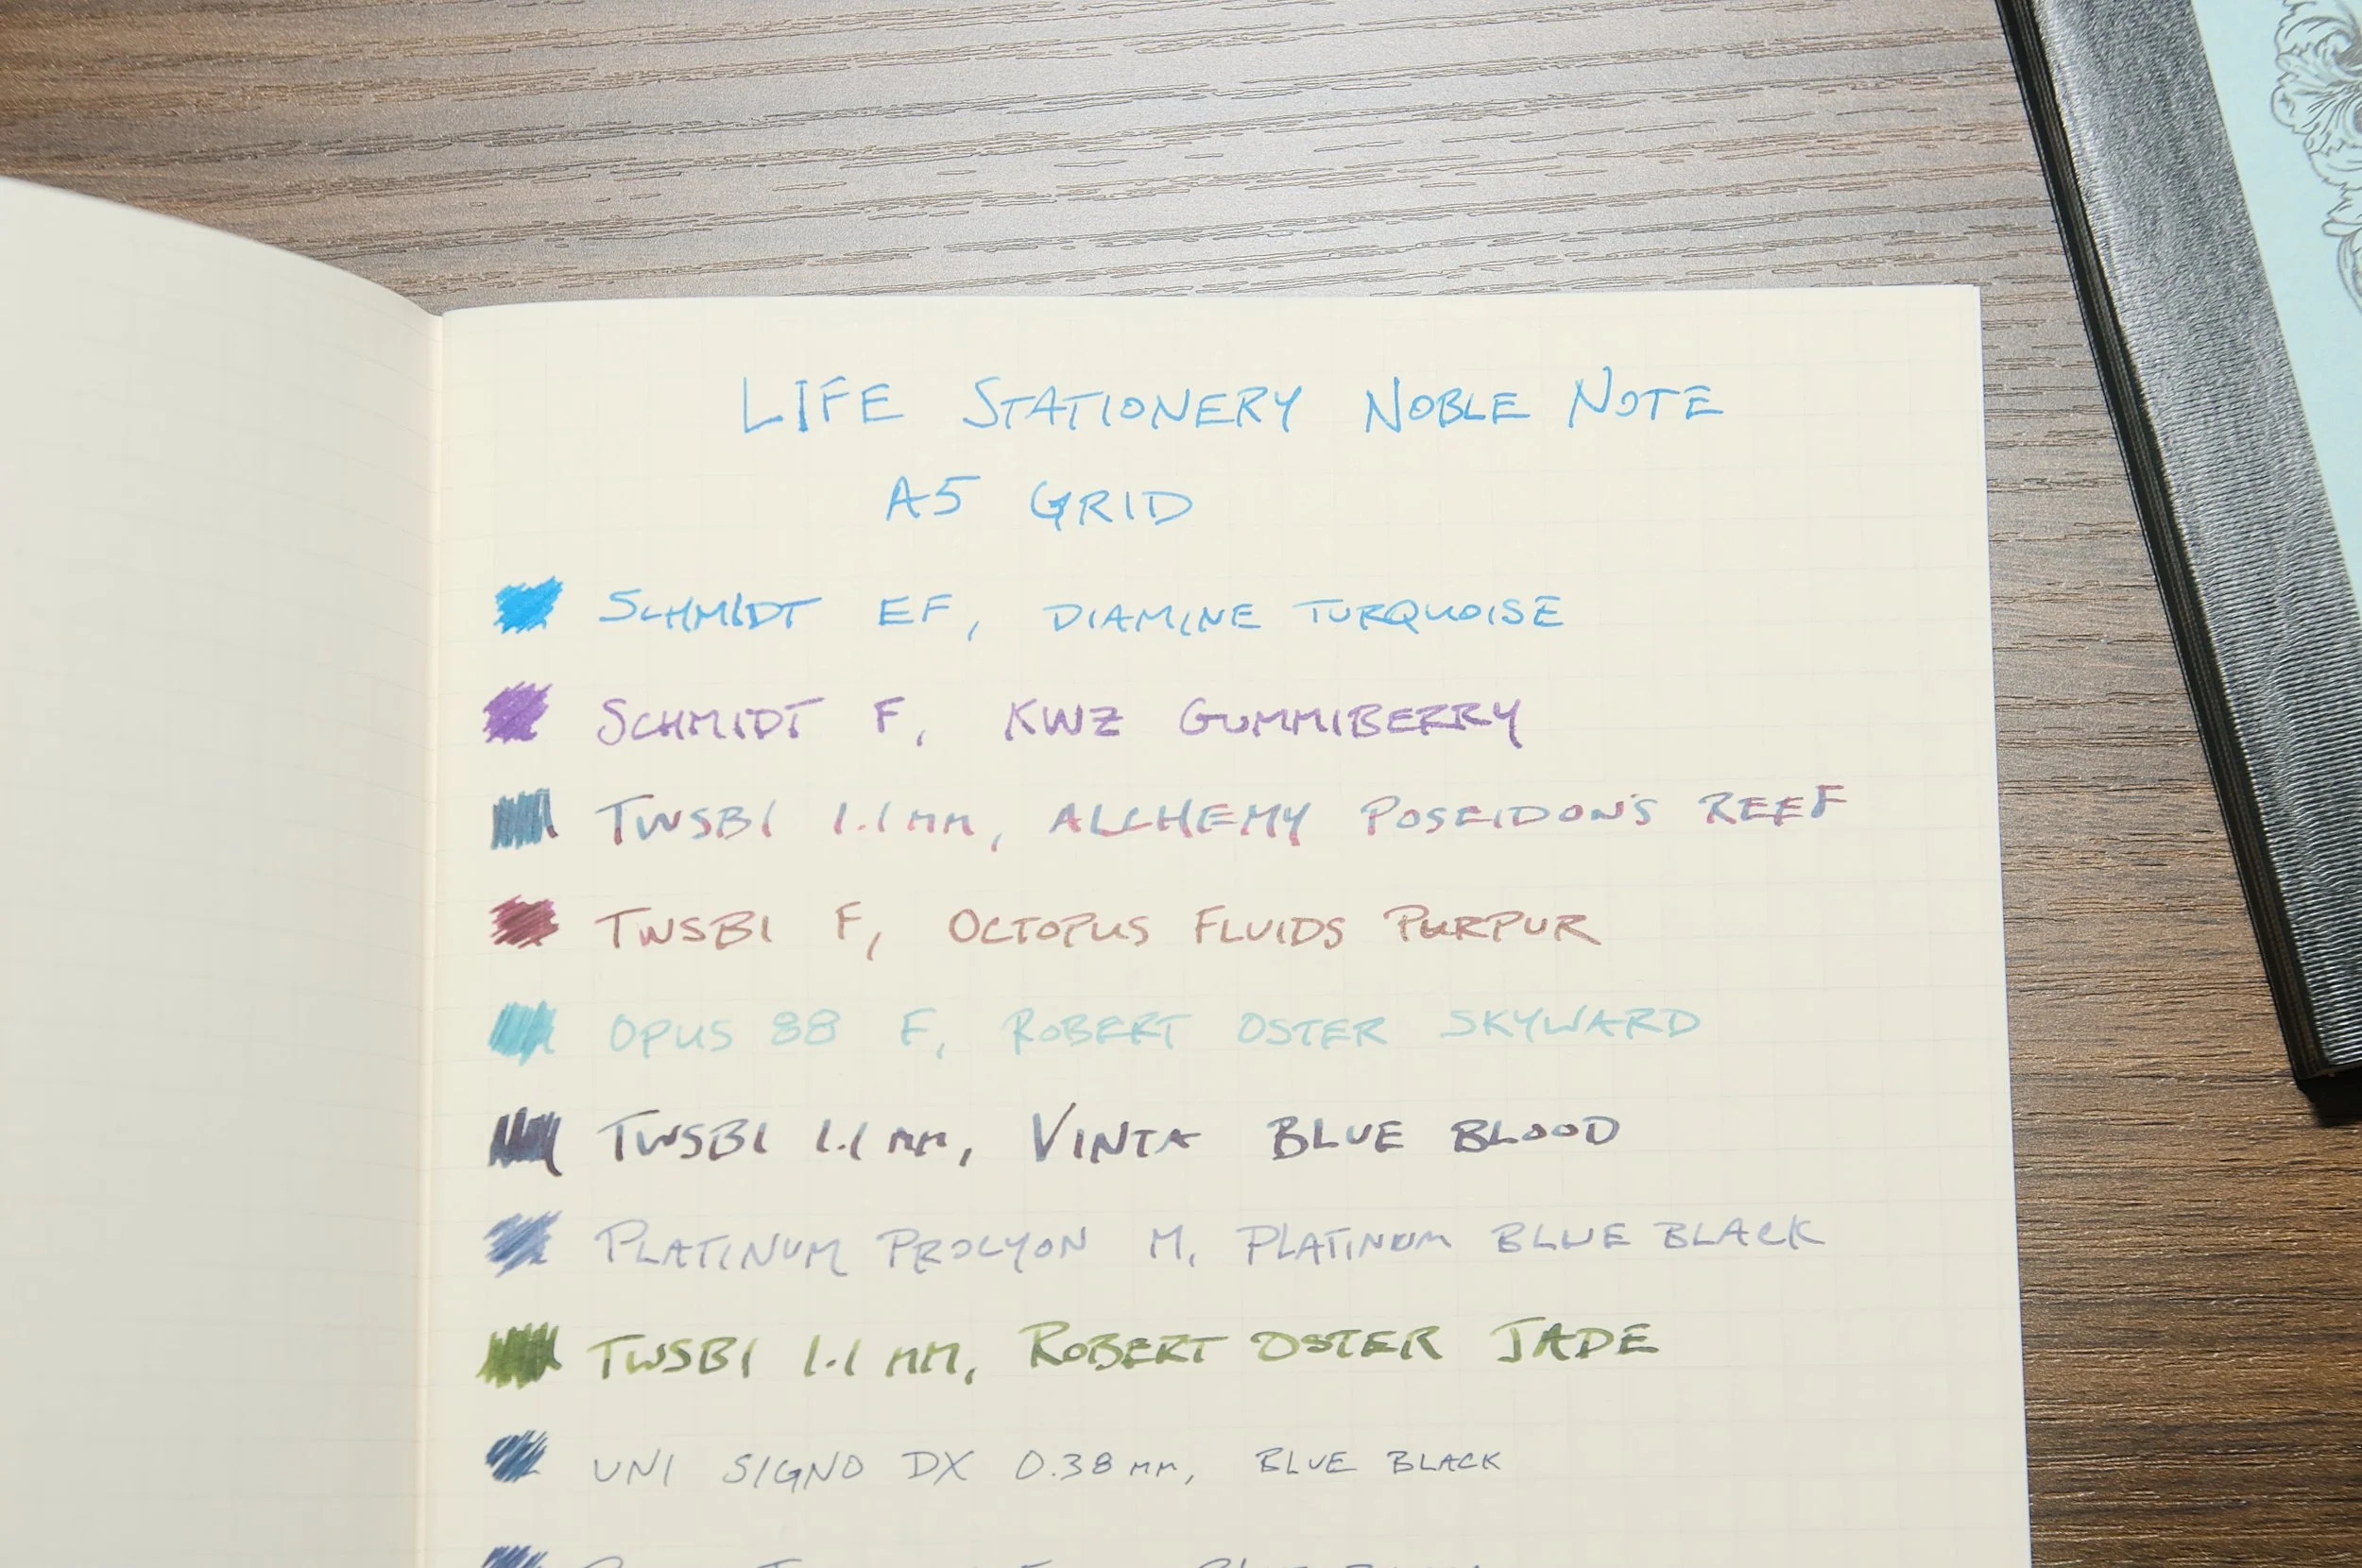 LIFE STATIONERY NOBLE NOTE
A5 GRID
SCHMIDT EF, DIAMINE TURQUOISE
SCHMIDT F, KWZ GUMMIBERRY
TWSBI 1.1mm, ALCHEMY POSEIDON'S REEF
TWSBI F, OCTOPUS FLUIDS PURPUR
OPUS 88 F, ROBERT OSTER SKYWARD
TWSBI 1.1mm, VINTA BLUE BLOOD
PLATINUM PROCYON M, PLATINUM BLUE BLACK
TWSBI 1.1mm, ROBERT OSTER JADE
UNI SIGNO DX 0.38mm, BLUE BLACK